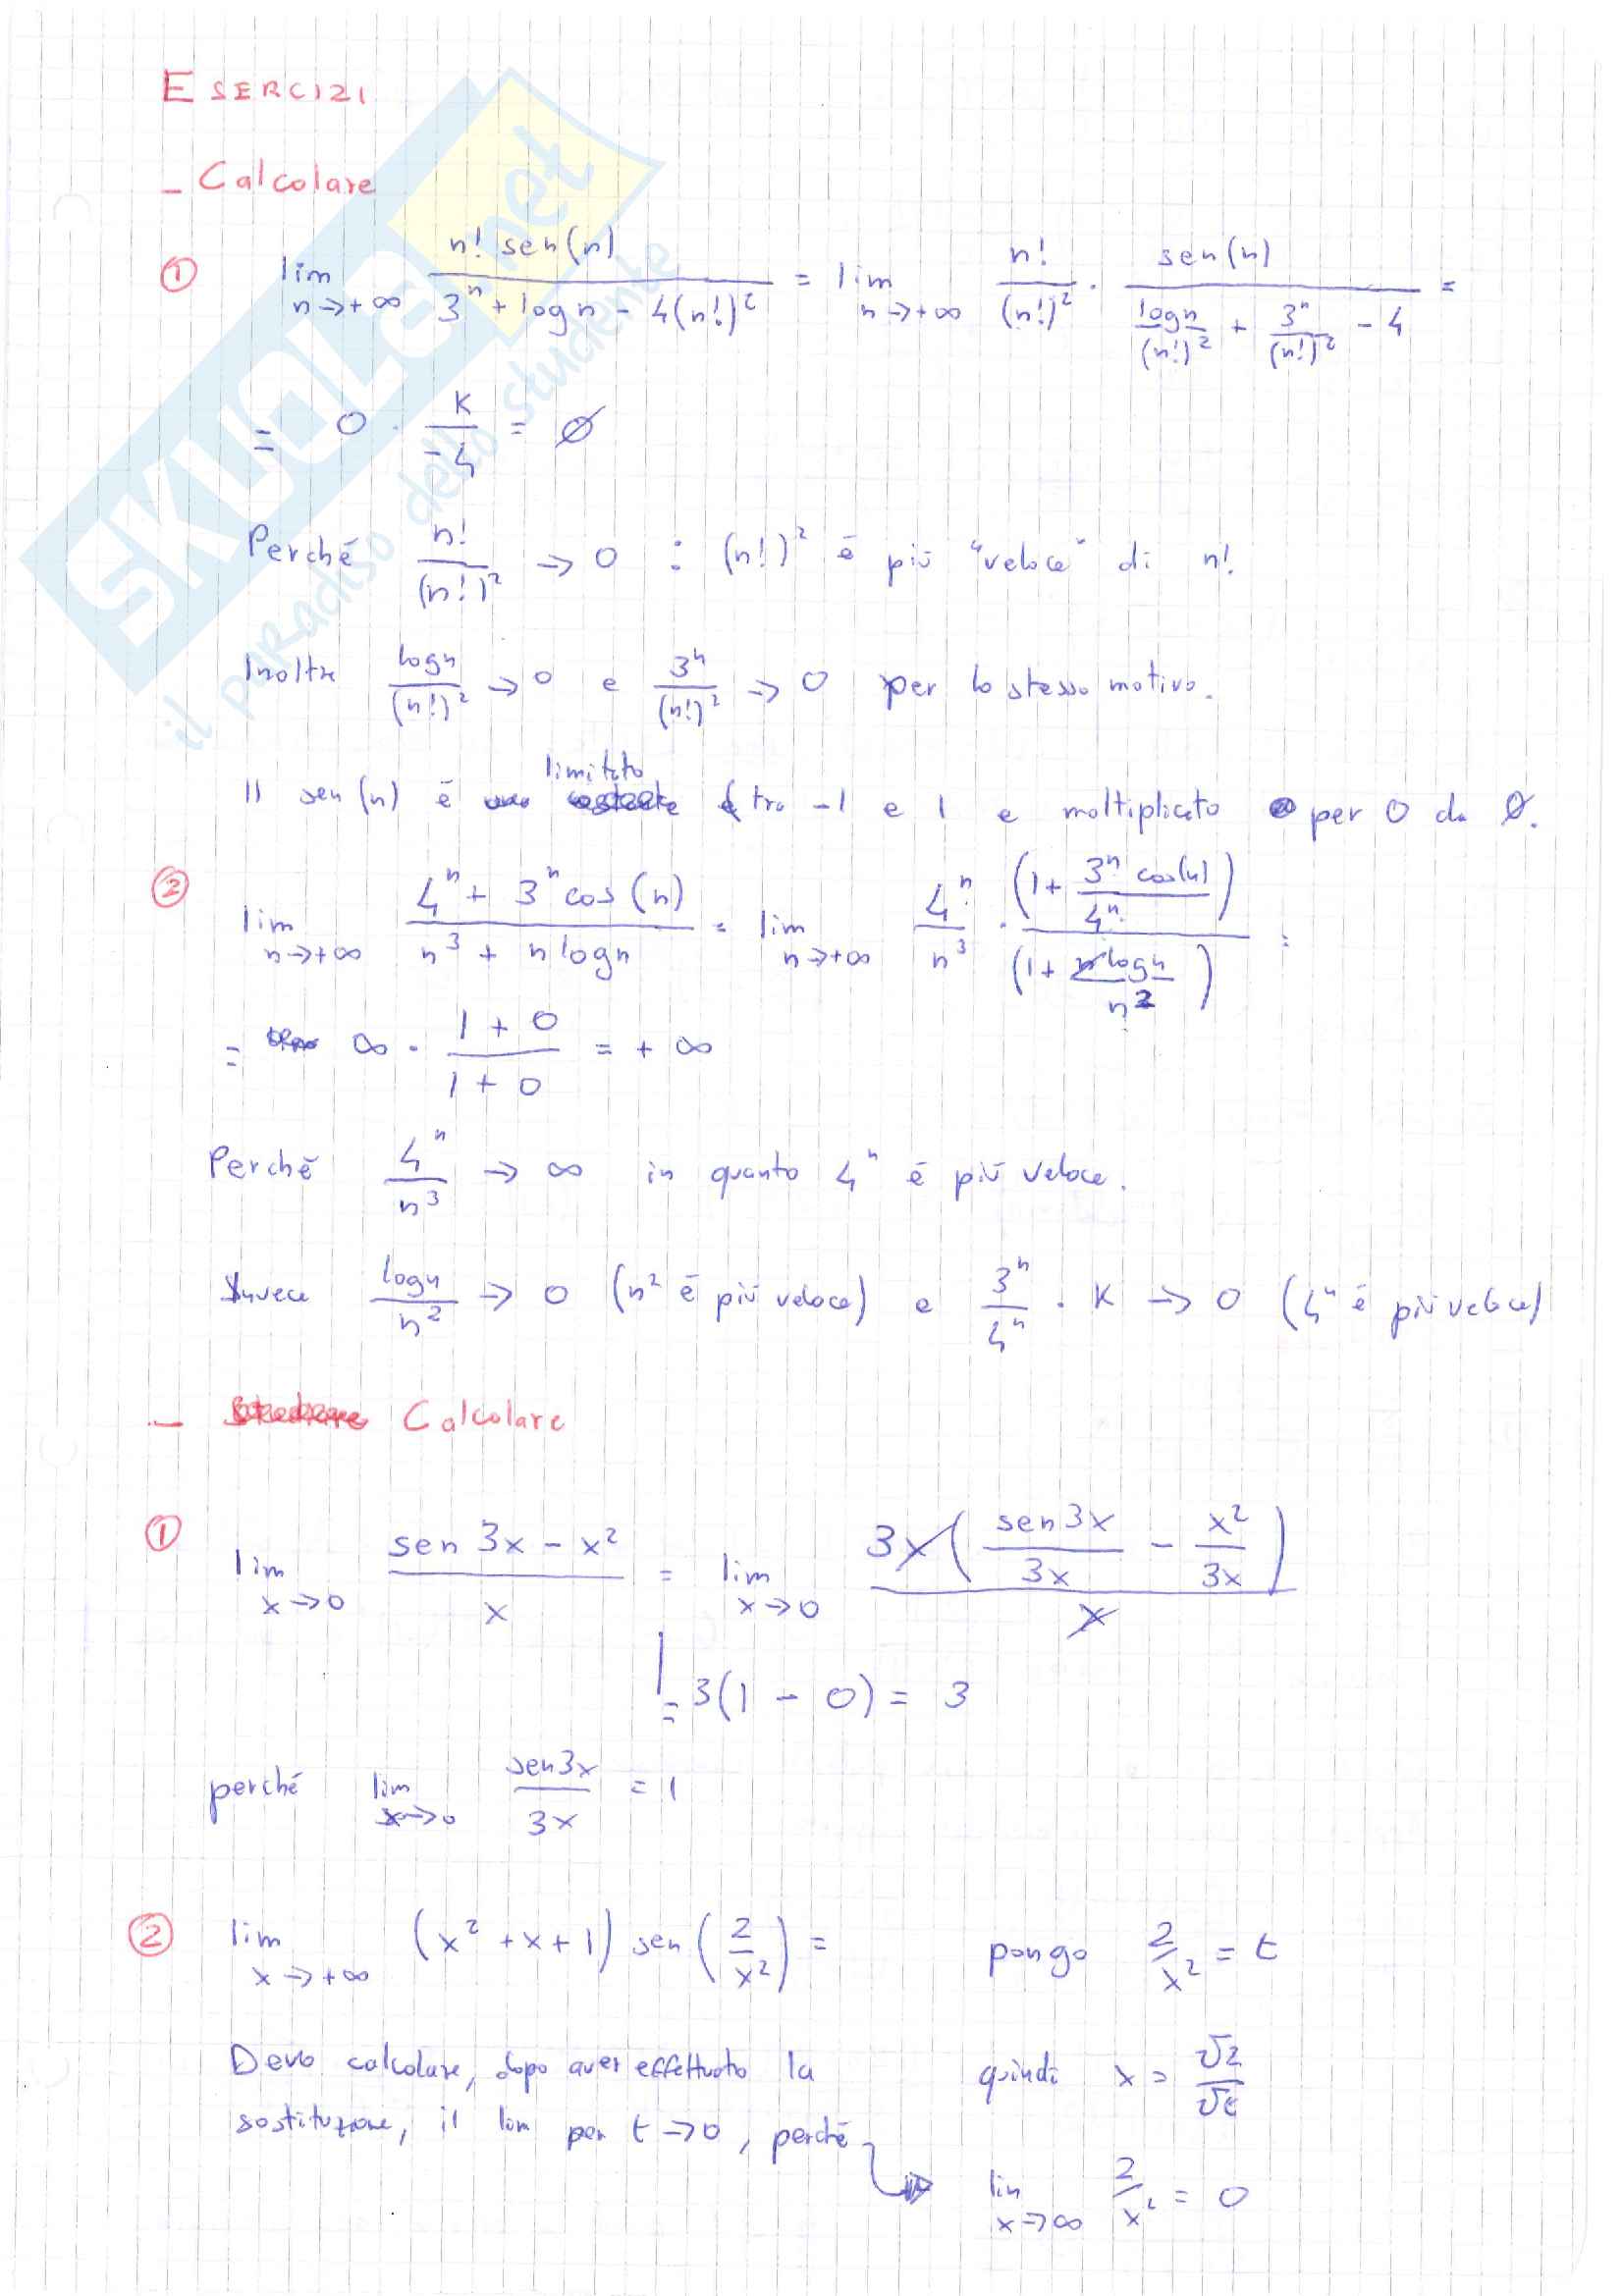 ESERCIZI
- Calcolare
① lim n→+∞ n! sen(n) / (3^n + log n - 4(n!)^2) = lim n→+∞ n!/(n!)^2 · sen(n) / (log n/(n!)^2 + 3^n/(n!)^2 - 4) =
= 0 · K/-4 = Ø
Perché n!/(n!)^2 → 0 : (n!)^2 è più "veloce" di n!
Inoltre log n/(n!)^2 → 0 e 3^n/(n!)^2 → 0 per lo stesso motivo.
Il sen(n) è limitato tra -1 e 1 e moltiplicato per 0 da Ø.
② lim n→+∞ (4^n + 3^n cos(n)) / (n^3 + n log n) = lim n→+∞ 4^n/n^3 · (1 + 3^n cos(n)/4^n) / (1 + n log n/n^2) =
= ∞ · (1 + 0)/(1 + 0) = + ∞
Perché 4^n/n^3 → ∞ in quanto 4^n è più veloce.
Invece log n/n^2 → 0 (n^2 è più veloce) e 3^n/4^n · K → 0 (4^n è più veloce)
- Calcolare
① lim x→0 (sen 3x - x^2)/x = lim x→0 3x(sen3x/3x - x^2/3x)/x
= 3(1 - 0) = 3
perché lim x→0 sen3x/3x = 1
② lim x→+∞ (x^2 + x + 1) sen(2/x^2) = pongo 2/x^2 = t
Devo calcolare, dopo aver effettuato la quindi x = √2/√t
sostituzione, il lim per t→0, perché
lim x→∞ 2/x^2 = 0
SKUOLA.net
il paradiso dello studente